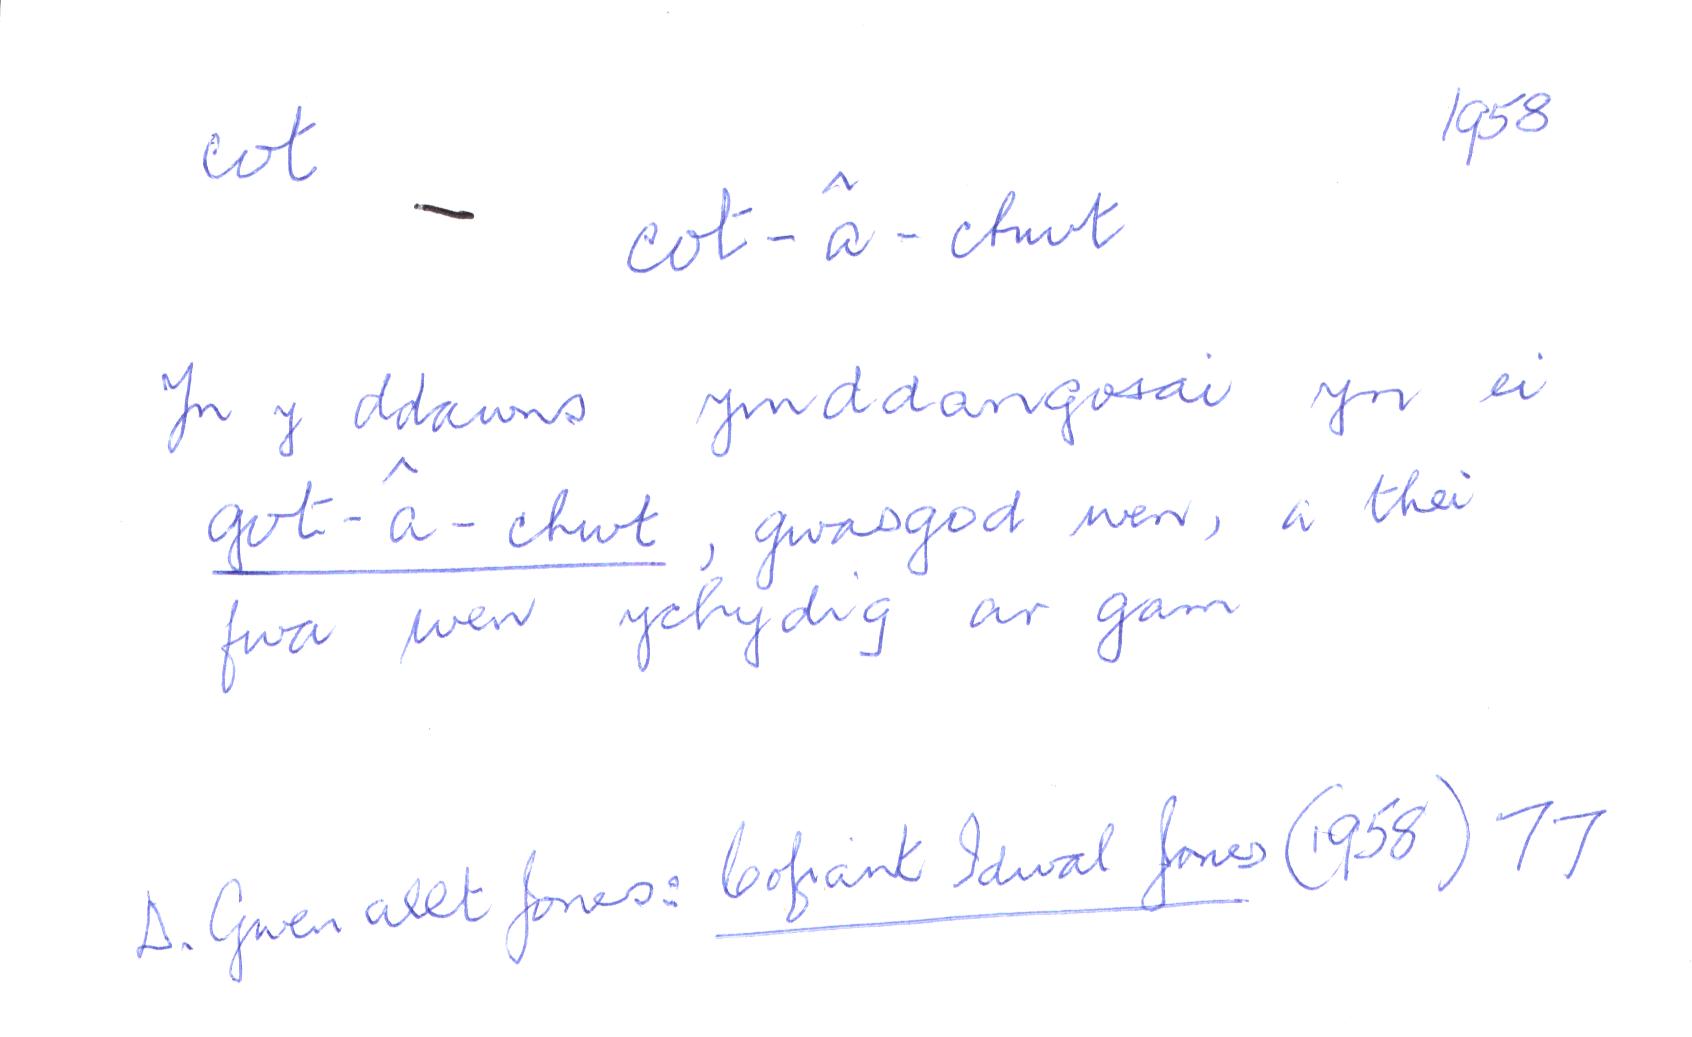 cot
1958
cot-â-chwt
Yn y ddawns ymddangosai yn ei
got-â-chwt, gwasgod wen, a thei
fwa wen ychydig ar gam
D. Gwenallt Jones: Cofiant Idwal Jones (1958) 77